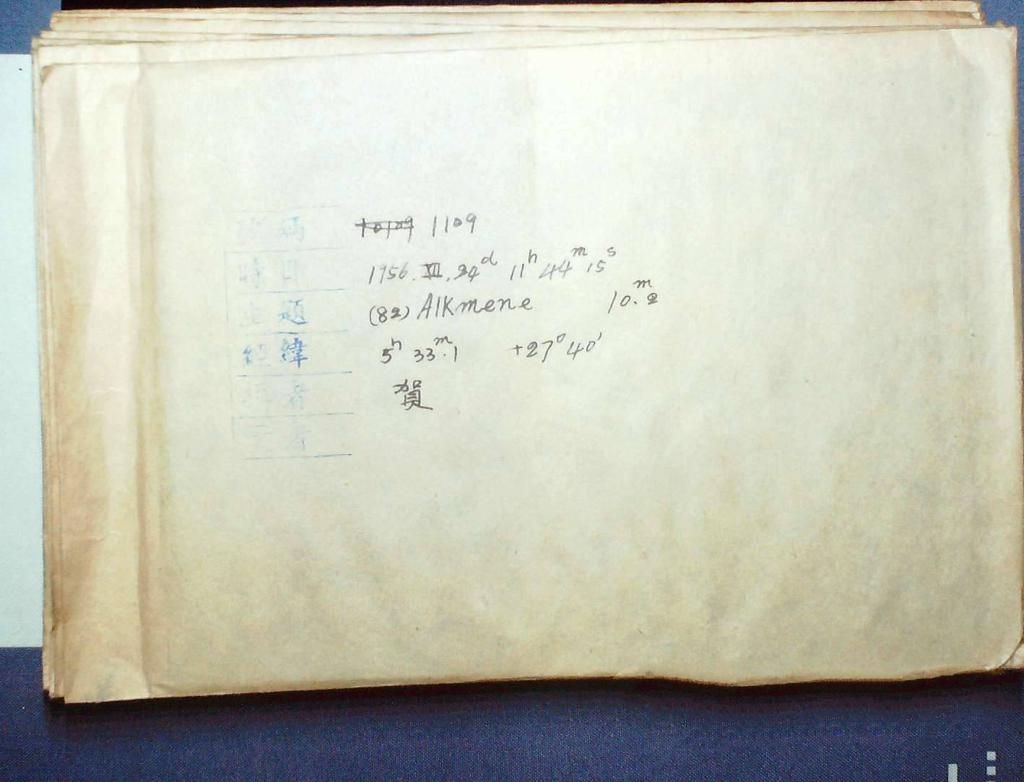 號碼 1109
時日 1956.XII.24ᵈ 11ʰ 44ᵐ 15ˢ
主題 (82) Alkmene 10.ᵐ2
經緯 5ʰ 33ᵐ.1 +27°40'
賀
者